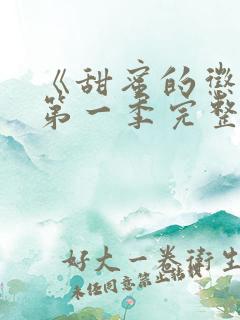 《甜蜜的惩
第一季完整
好大一卷卫生
未经同意禁止转载